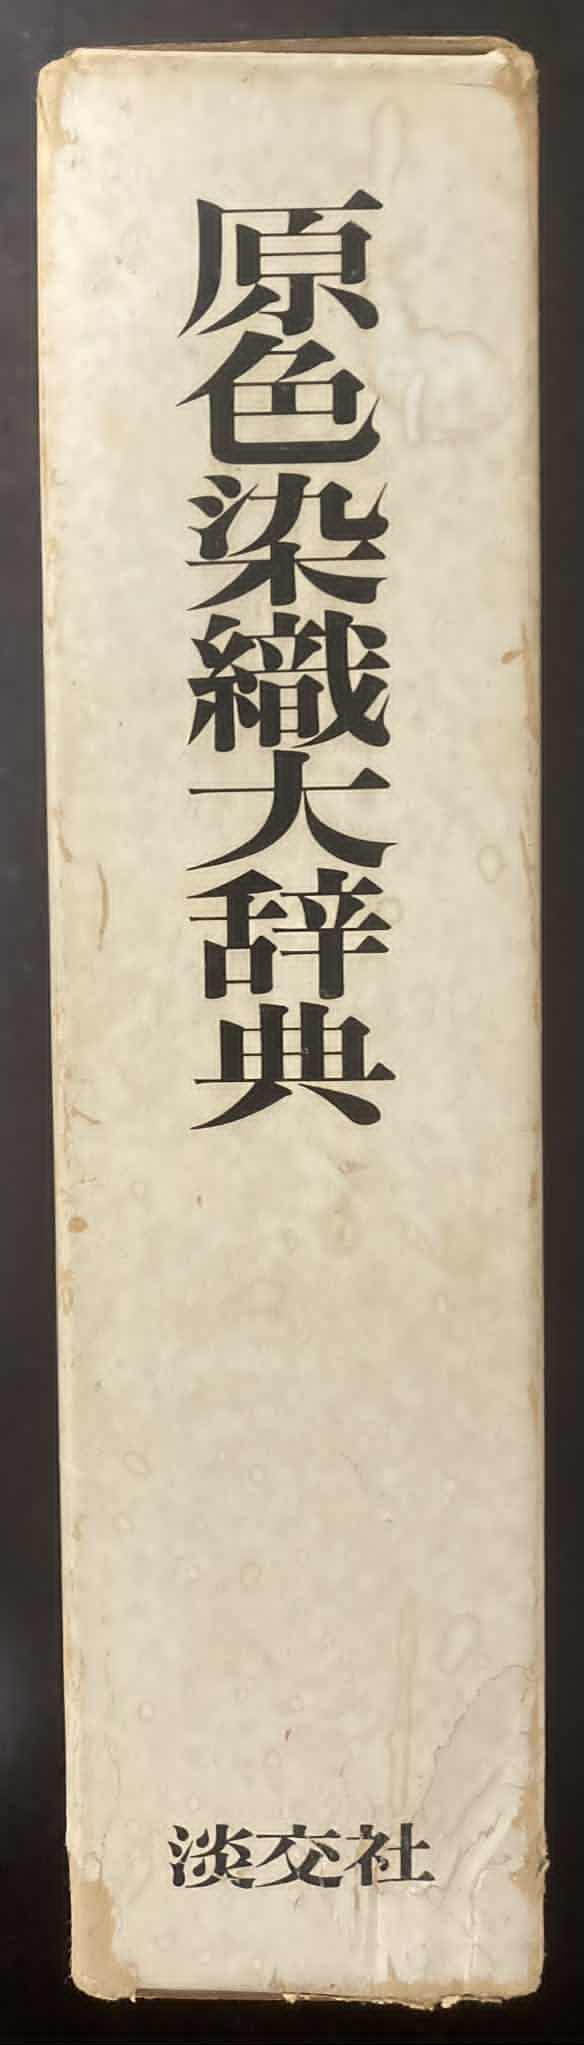 原色染織大辞典
淡交社